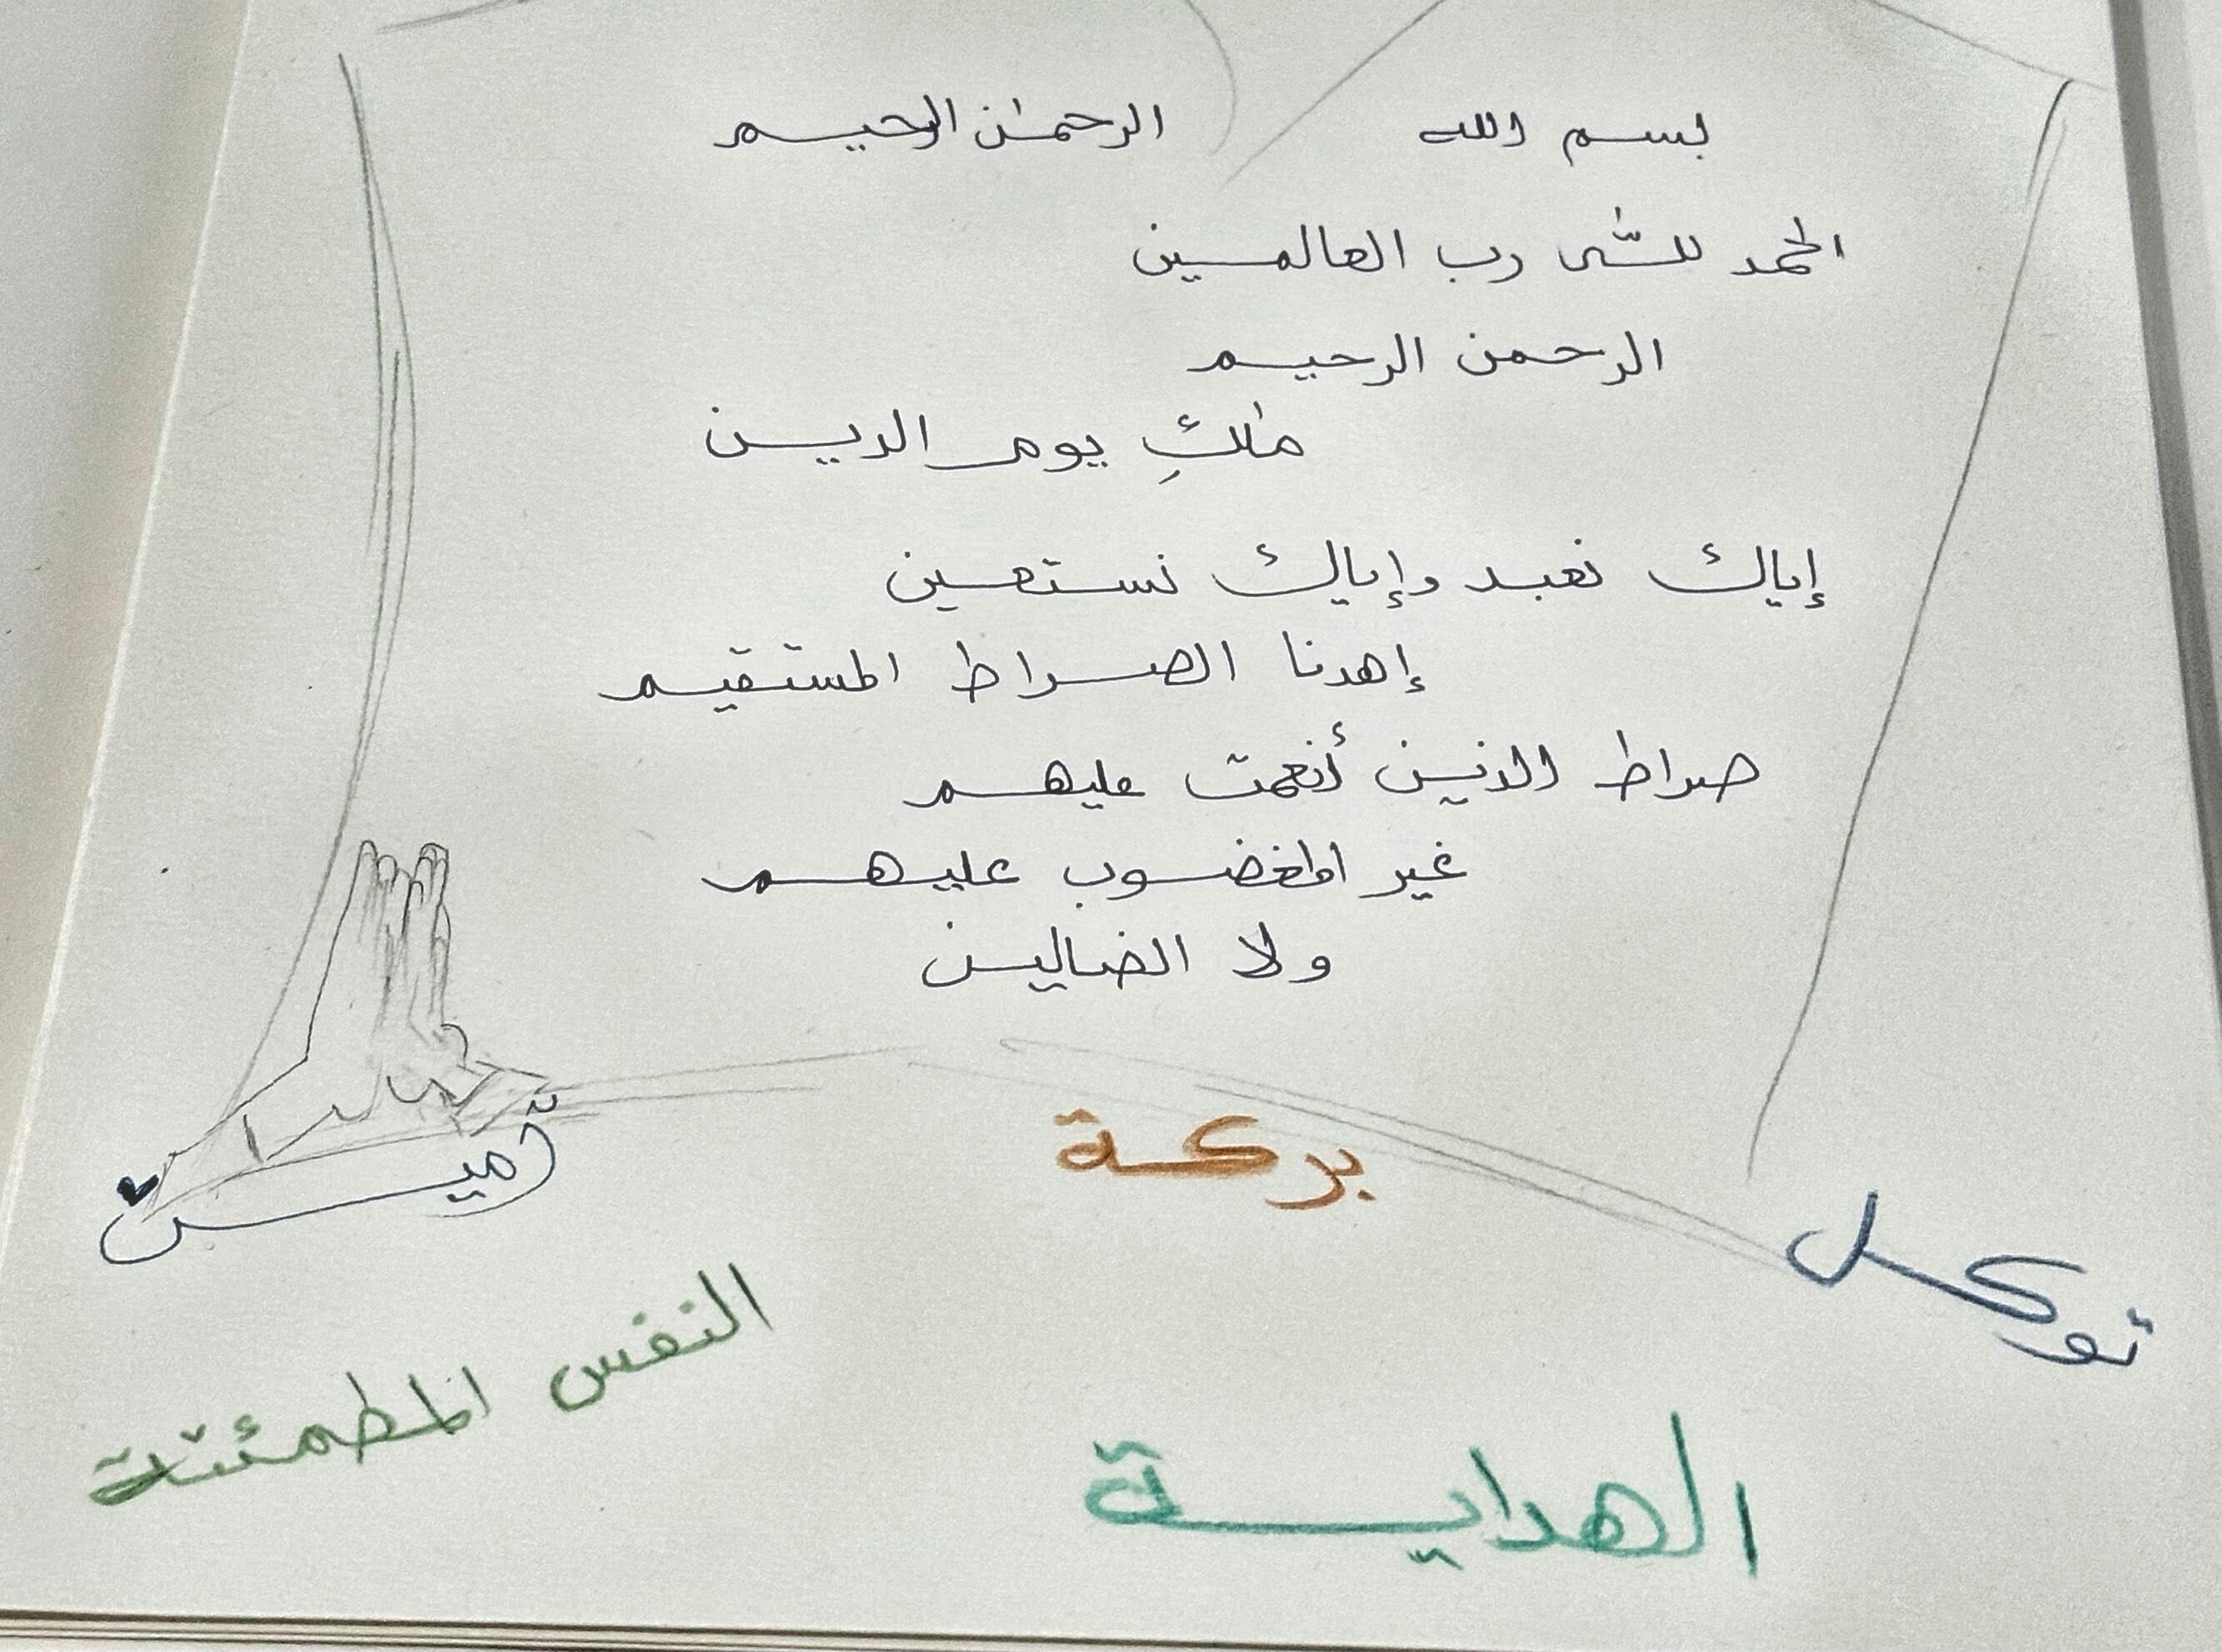 بسم الله الرحمٰن الرحيم
الحمد للّٰه رب العالمين
الرحمن الرحيم
مٰلكِ يوم الدين
إياك نعبد وإياك نستعين
إهدنا الصراط المستقيم
صراط الذين أنعمت عليهم
غير المغضوب عليهم
ولا الضالين
آمين
بركة
توكل
النفس المطمئنة
الهداية